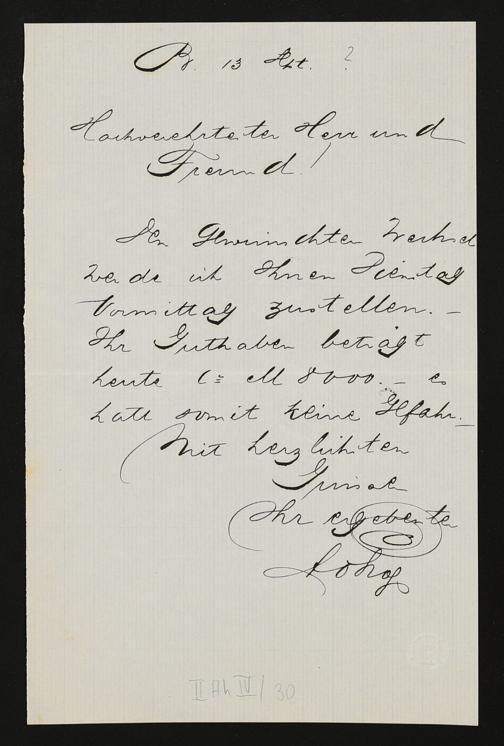 B. 13 Spt. ?
Hochverehrtester Herr und
Freund!
Den gewünschten Wechsel
werde ich Ihnen Dienstag
Vormittag zustellen. –
Ihr Guthaben beträgt
heute C= M 8000. – es
hatt somit keine Gefahr. –
Mit herzlichsten
Grüssen
Ihr ergebenster
II Ah IV / 30